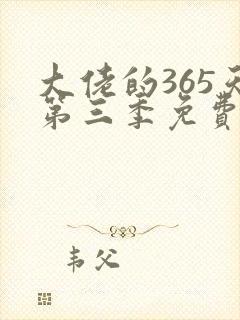 大佬的365天
第三季免費
韦父